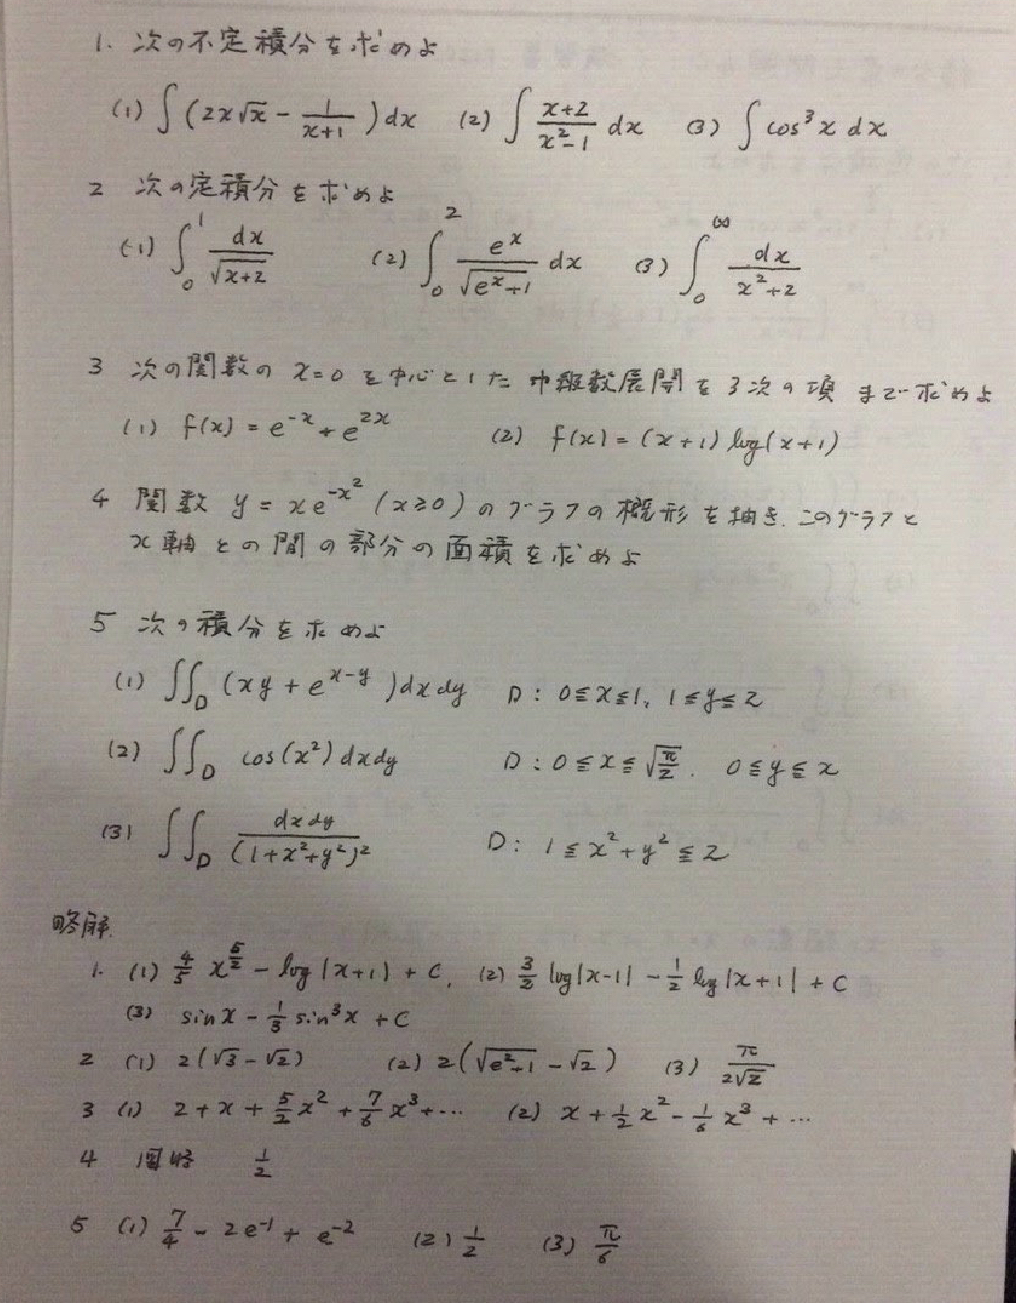 1. 次の不定積分を求めよ
(1) ∫(2x√x − 1/(x+1))dx (2) ∫ (x+2)/(x²−1) dx (3) ∫cos³x dx
2 次の定積分を求めよ
(1) ∫₀¹ dx/√(x+2) (2) ∫₀² eˣ/√(eˣ+1) dx (3) ∫₀^∞ dx/(x²+2)
3 次の関数の x=0 を中心とした巾級数展開を3次の項まで求めよ
(1) f(x) = e^{-x} + e^{2x} (2) f(x) = (x+1) log(x+1)
4 関数 y = xe^{-x²} (x≧0) のグラフの概形を描き、このグラフと
x軸との間の部分の面積を求めよ
5 次の積分を求めよ
(1) ∬_D (xy + e^{x-y})dxdy D: 0≦x≦1, 1≦y≦2
(2) ∬_D cos(x²)dxdy D: 0≦x≦√(π/2), 0≦y≦x
(3) ∬_D dxdy/(1+x²+y²)² D: 1≦x²+y²≦2
略解.
1. (1) 4/5 x^{5/2} − log|x+1| + C, (2) 3/2 log|x−1| − 1/2 log|x+1| + C
(3) sin x − 1/3 sin³x + C
2 (1) 2(√3−√2) (2) 2(√(e²+1) − √2) (3) π/(2√2)
3 (1) 2 + x + 5/2 x² + 7/6 x³ + ⋯ (2) x + 1/2 x² − 1/6 x³ + ⋯
4 図略 1/2
5 (1) 7/4 − 2e^{-1} + e^{-2} (2) 1/2 (3) π/6